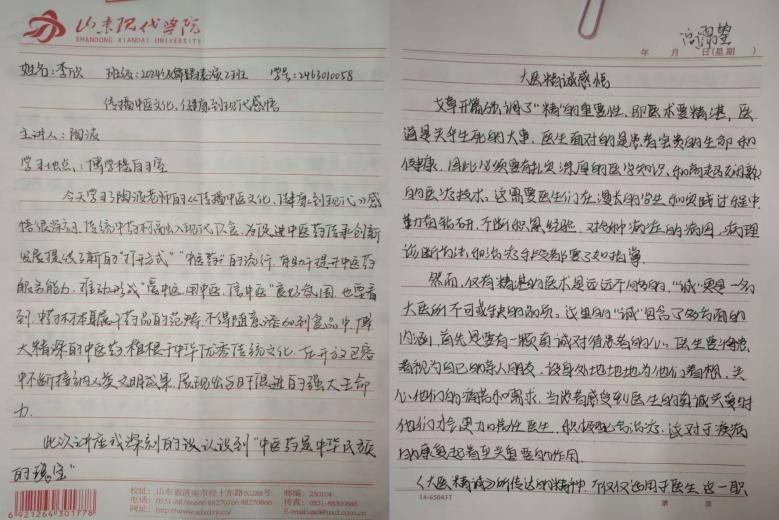 山东现代学院
SHANDONG XIANDAI UNIVERSITY
姓名：李欣 班级：2024级 2班 学号：2463010058
传播中医文化，健康到现代感悟
主讲人：陶波
学习地点：博学楼自习室
今天学习了陶波老师的《传播中医文化，健康到现代》感
悟很深刻，传统中药材融入现代饮食，为促进中医药传承创新
发展提供了新的"打开方式""中医药"的流行，有助于提升中医药
服务能力，推动形成"爱中医、用中医、信中医"良好氛围，也要看
到，中药材本身属于药品的范畴，不得随意添加到食品中，博
大精深的中医药植根于中华优秀传统文化，在开放包容
中不断接纳人类文明成果，展现出与时俱进的强大生命
力
此次讲座我深刻的认识到"中医药是中华民族
的瑰宝"
校址：山东省济南市经十东路20288号 邮编：250104
6921264301778
年 月 日(星期 )
大医精诚感悟
文章开篇强调了"精"的重要性，即医术要精湛，医
道是关乎生死的大事，医生面对的是患者宝贵的生命和
健康，因此必须要有扎实深厚的医学知识，和高超娴熟
的医疗技术，这需要医生们在漫长的学生和实践过程中
勤奋钻研，不断积累经验，对各种病症的病因，病理
诊断方法和治疗手段都要了如指掌
然而，仅有精湛的医术是远远不够的，"诚"更是一名
大医所不可或缺的品质，这里的"诚"包含了多方面的
内涵，首先是要有一颗真诚对待患者的心。医生要将患
者视为自己的亲人朋友，设身处地地为他们着想，关
心他们的痛苦和需求，当患者感受到医生的真诚关爱时
他们才会更加信任医生，积极配合治疗，这对于疾病
的康复起着至关重要的作用
《大医精诚》所传达的精神，不仅仅适用于医生这一职
14-650437
第 页